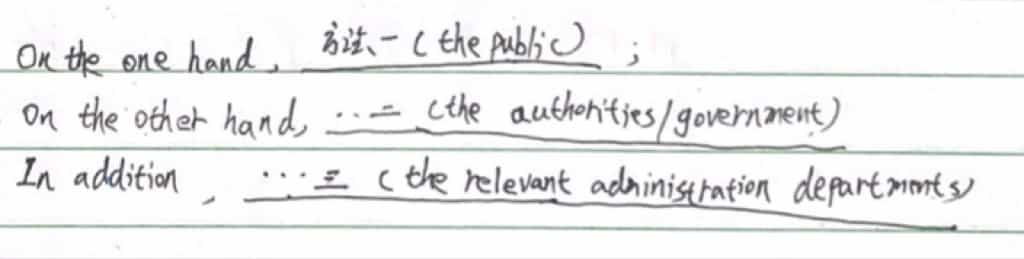 On the one hand, 方法一 (the public) ;
On the other hand, ...二 (the authorities/government)
In addition , ...三 (the relevant administration departments)